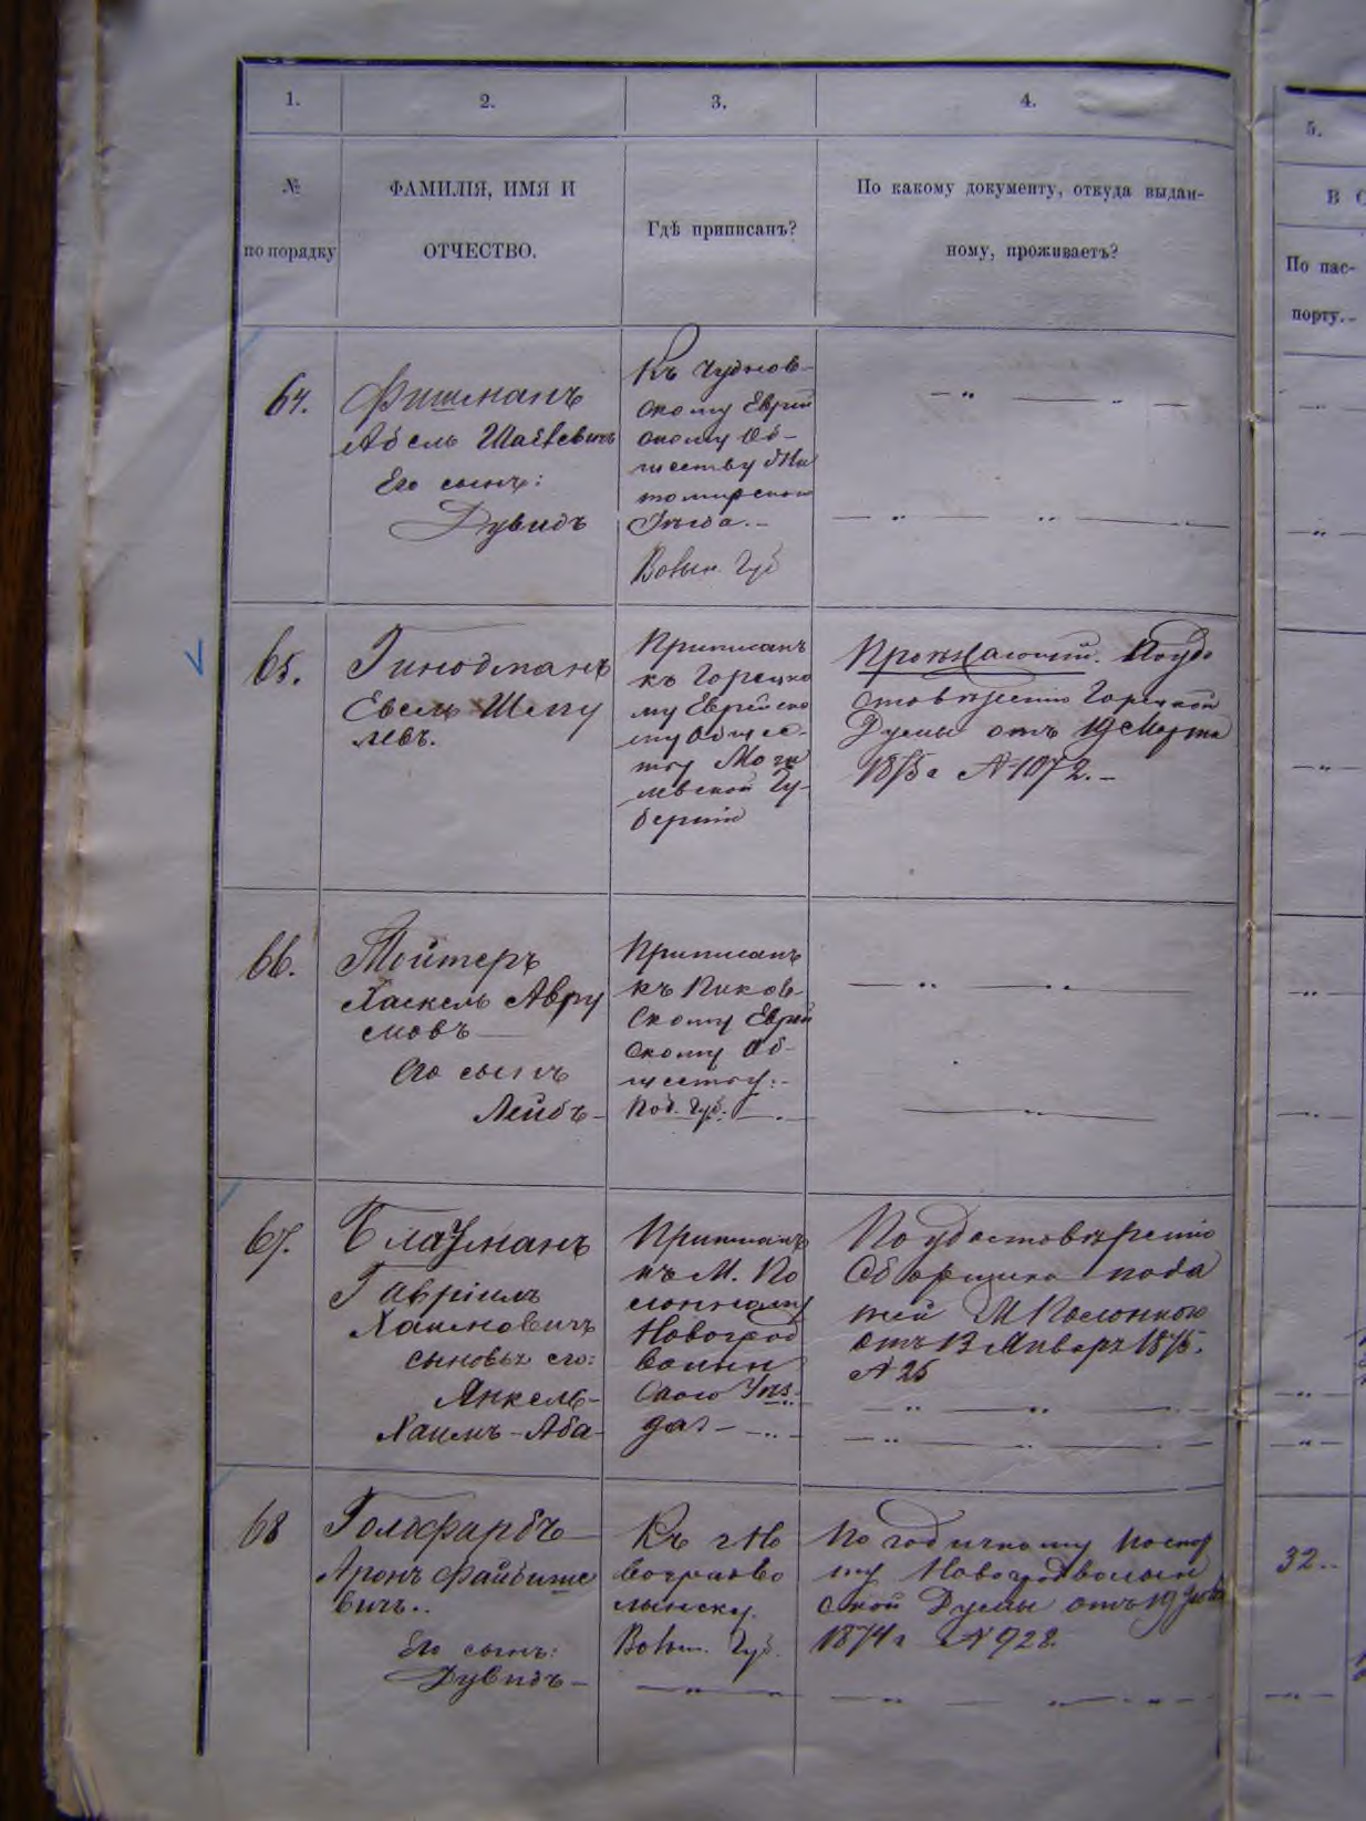 1.
2.
3.
4.
5.
№
по порядку
ФАМИЛІЯ, ИМЯ И
ОТЧЕСТВО.
Гдѣ приписанъ?
По какому документу, откуда выдан-
ному, проживаетъ?
По пас-
порту.
64.
Фишманъ
Абель
Его сынъ:
Дувидъ
Къ Чуднов-
скому Еврей
скому Об-
ществу Жи
томирскаго
Уѣзда.
Волын. Губ
65.
Гинодманъ
Евель Шму
левъ.
Приписанъ
къ Горецко
му Еврейско
му Общес-
тву Моги
левской Гу-
берніи
Проѣзжающій. По удо
стовѣренію Горецкой
Думы отъ 19 Марта
1875 г №1072.
66.
Тойтеръ
Хаскель Авру
мовъ
Его сынъ
Лейбъ
Приписанъ
къ Пиков-
скому Еврей
скому Об-
ществу.
Под. Губ.
67.
Блазманъ
Гавріилъ
Хаимовичъ
Сыновья его:
Янкель-
Хаимъ-Аба-
Приписанъ
къ М. По
лонному
Новоград
волын
скаго Уѣз-
да
По удостовѣренію
Сборщика пода
тей М Полоннаго
отъ 13 Января 1875.
№ 25
68
Голдфарбъ
Аронъ Файбише
вичъ..
Его сынъ:
Дувидъ-
Къ г Но
воградво
лынску.
Волын. Губ.
По годичному паспор
ту Новоградволын
ской Думы отъ 19
1874 г №928.
32..